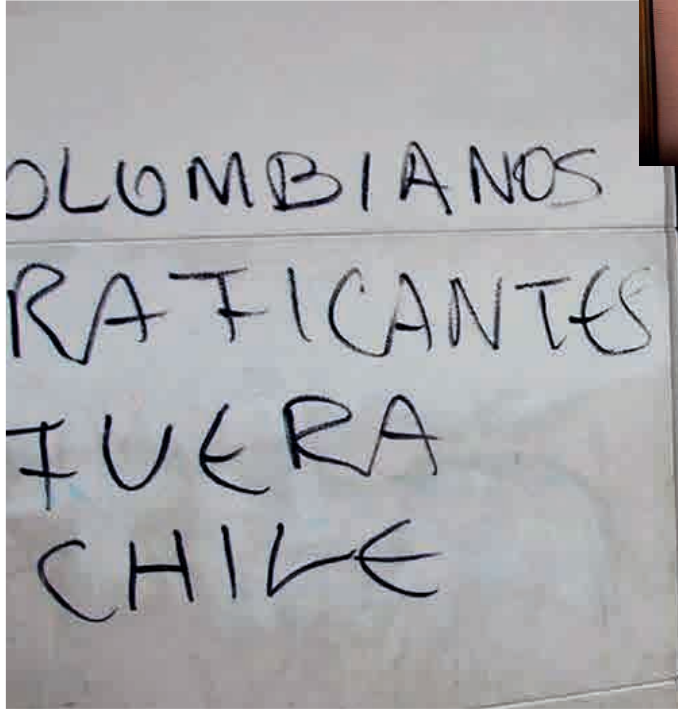 OLOMBIANOS
RAFICANTES
FUERA
CHILE